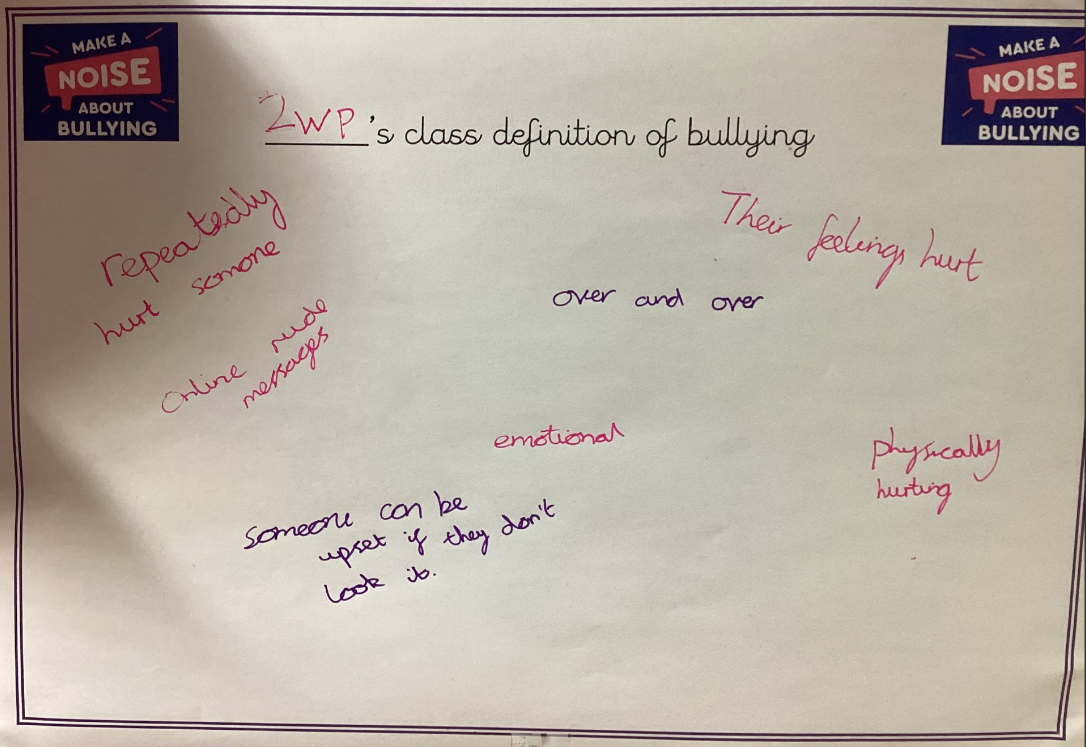 MAKE A
NOISE
ABOUT
BULLYING
MAKE A
NOISE
ABOUT
BULLYING
2WP's class definition of bullying
repeatedly
hurt somone
Their feelings hurt
over and over
online rude
messages
emotional
physically
hurting
someone can be
upset if they don't
look it.